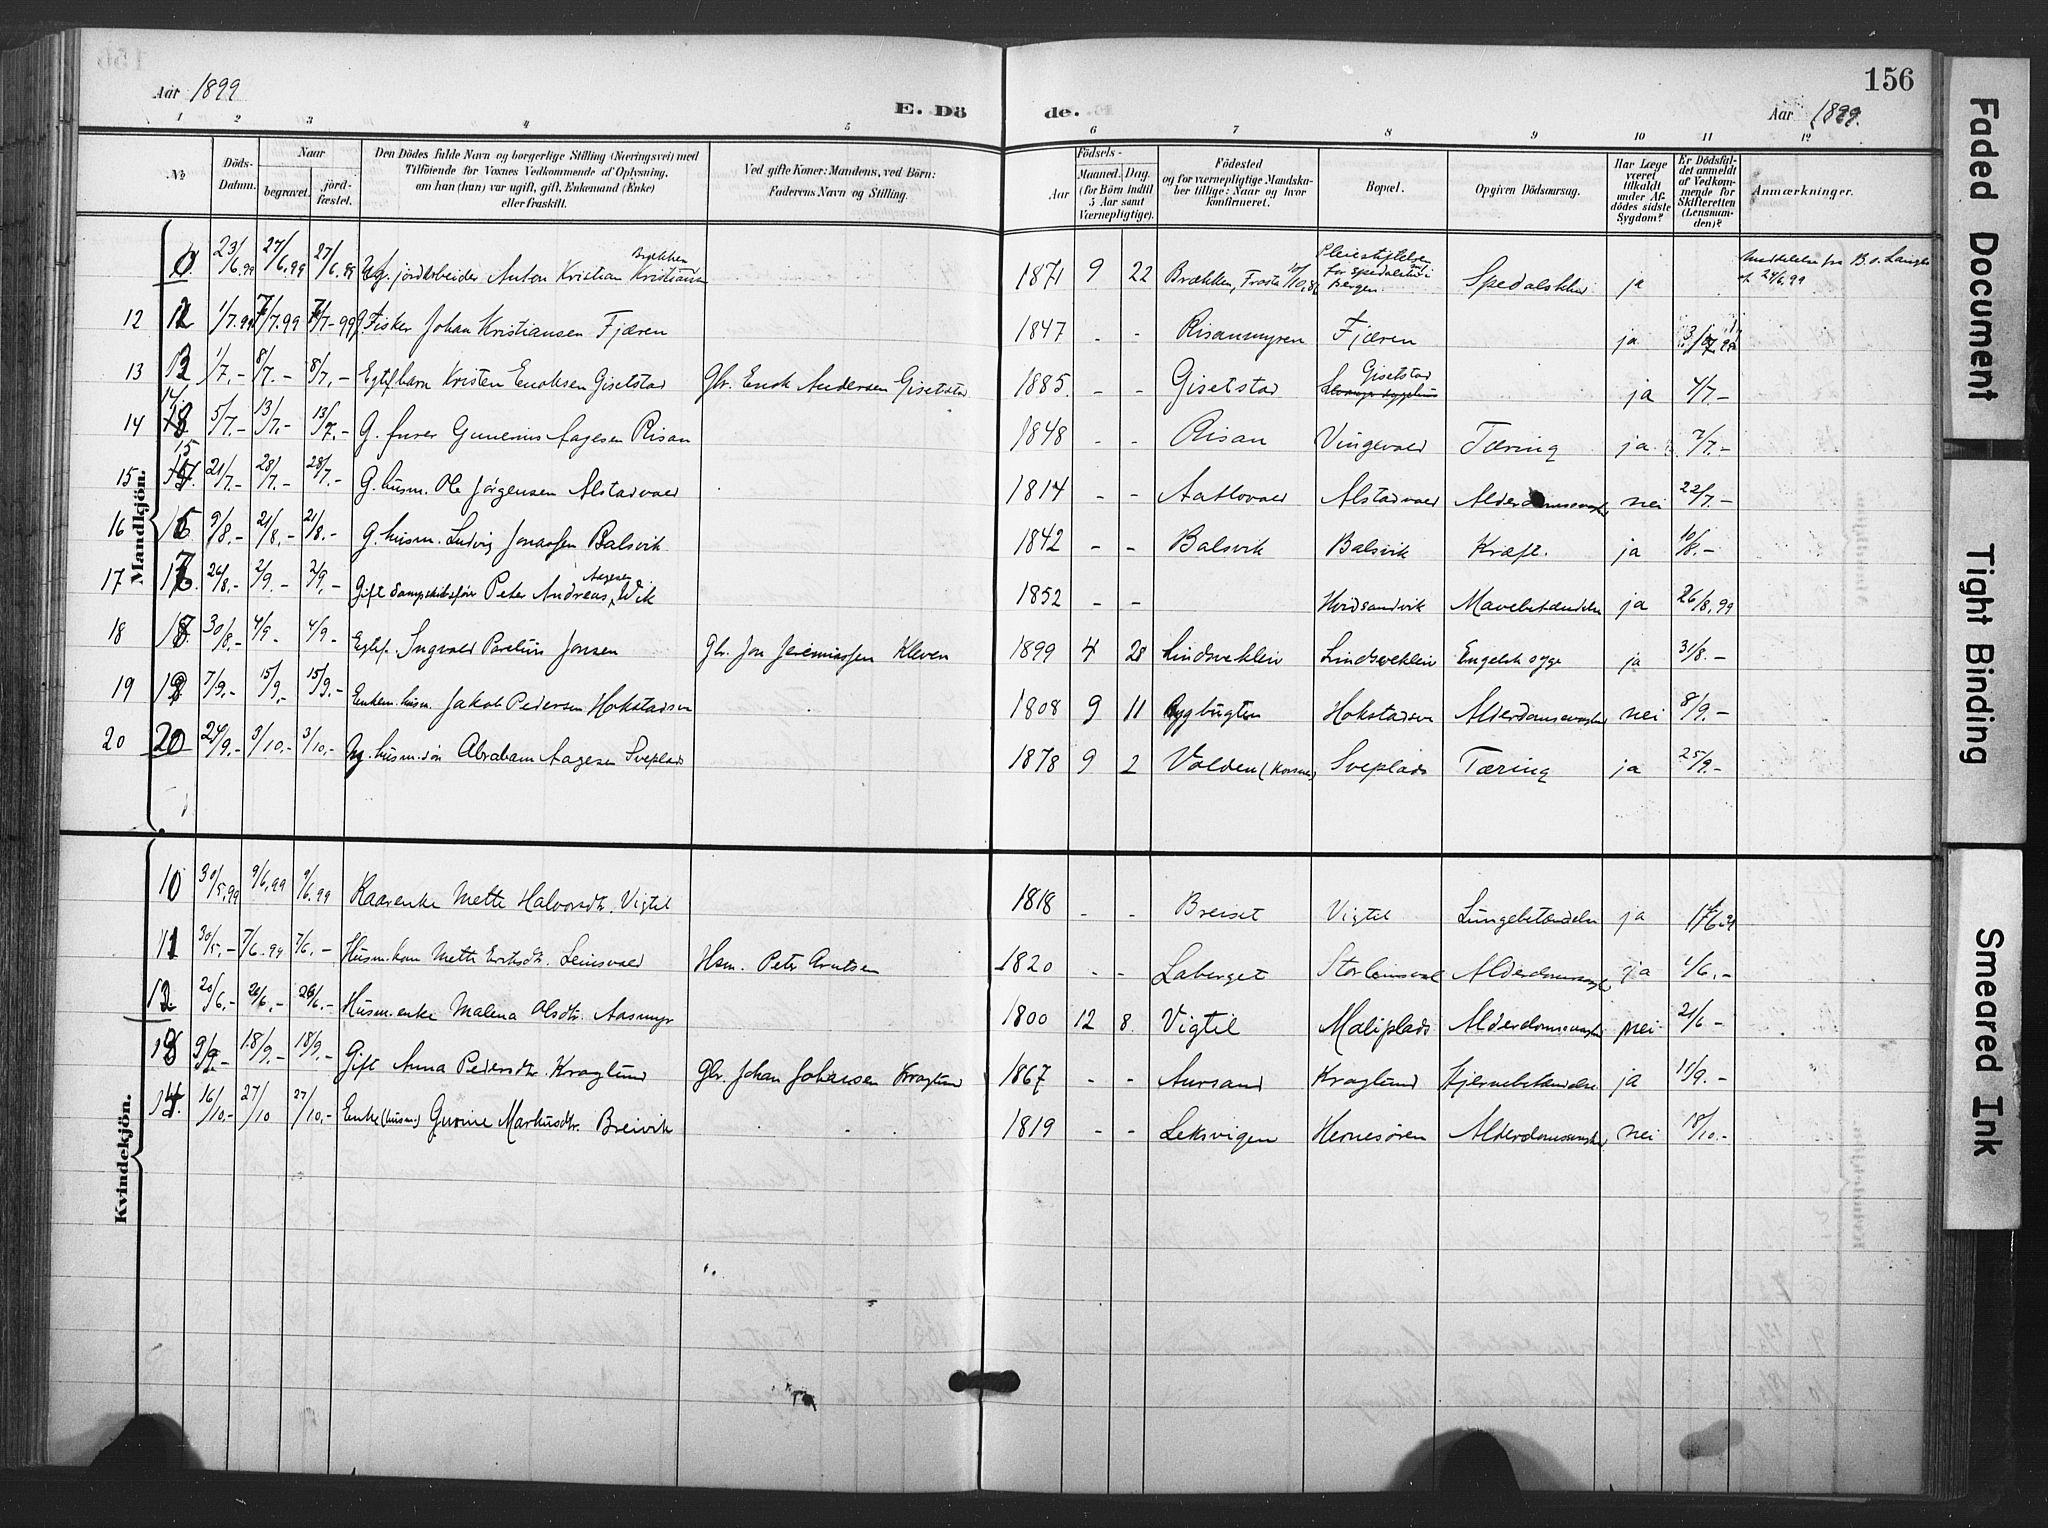 156
Aar 1899
E. Dö
de.
Aar 1899.
1 2 3 4 5 6 7 8 9 10 11 12
No
Döds-Datum.
Naar
begravet.
jord-fæstet.
Den Dödes fulde Navn og borgerlige Stilling (Næringsvei) med
Tilföiende for Voxnes Vedkommende af Oplysning,
om han (hun) var ugift, gift, Enkemand (Enke)
eller fraskilt.
Ved gifte Koner: Mandens, ved Börn:
Faderens Navn og Stilling.
Födsels-
Aar
Maaned.
Dag.
(for Börn indtil
5 Aar samt
Værnepligtige).
Födested
og for værnepligtige Mandska-
ber tillige: Naar og hvor
konfirmeret.
Bopæl.
Opgiven Dödsaarsag.
Har Læge
været
tilkaldt
under Af-
dödes sidste
Sygdom?
Er Dödsfal-
det anmeldt
af Vedkom-
mende for
Skifteretten
(Lensman-
den)?
Anmærkninger.
Mandkjön.
23/6.99 27/6.99 27/6.99 Ug. jordarbeider Anton Kristian Kristiansen Brækken 1871 9 22 Brækken, Frosta Pleiestiftelsen for spedalske i Bergen. Spedalskhed ja
12 12 1/7.99 7/7.99 7/7-99 G. Fisker Johan Kristiansen Fjæren 1847 - - Risanmyren Fjæren ja
13 13 1/7.- 8/7.- 8/7.- Egtef. barn Kristen Enoksen Gisetstad Gbr. Enok Andersen Gisetstad 1885. - - Gisetstad Gisetstad ja 4/7.-
14 14 5/7.- 13/7.- 13/7.- G. furer Gunerius Aagesen Risan 1848 - - Risan Vingevald Tæring ja 7/7.-
15 15 21/7.- 28/7.- 28/7.- G. husm. Ole Jörgensen Alstadvald 1814 - - Alstadvald Alderdomssvaghed nei 22/7.-
16 16 9/8.- 21/8.- 21/8.- G. husm. Ludvig Jonassen Balsvik 1842 - - Balsvik Balsvik Kræft. ja 10/8.-
17 17 26/8.- 2/9.- 2/9.- Gift Dampskibsfører Peter Andreas Aagesen Wik 1852 - - Hvidsandvik Mavebetændelse ja 26/8.99
18 18 30/8.- 4/9.- 4/9.- Egtef. Ingvald Parelius Jonsen Gbr. Jon Jeremiassen Kleven 1899 4 28 Lindsetkleiv Lindsetkleiv Engelsk syge ja 31/8.-
19 19 7/9.- 15/9.- 15/9.- Enkem. husm. Jakob Pedersen Hokstadsve 1808 9 11 Rygbugten Hokstadsve Alderdomssvaghed nei 8/9.-
20 20 24/9.- 3/10.- 3/10.- Ug. husm. sön Abraham Aagesen Sveplads 1878 9 2 Volden Sveplads Tæring ja 25/9.-
Kvindekjön.
10 30/5.99 9/6.99 9/6.99 Kaarenke Mette Halvorsdtr. Vigtil 1818 - - Breiset Vigtil Lungebetændelse ja
11 30/5.- 7/6.99 7/6.- Husm. kone Mette Leinsvald Hsm. Peter Arntsen 1820 - - Laberget Storleinsvald Alderdomssvaghed ja 4/6.-
12. 20/6.- 26/6.- 26/6.- Husm. enke Malena Olsdtr. Aasmyr 1800 12 8. Vigtil Moliplads Alderdomssvaghed nei- 21/6-
13 9/9- 18/9.- 18/9.- Gift Anna Pedersdtr. Kroglund Gbr. Johan Johansen Kroglund 1867 - - Aursand Kroglund Hjernebetændelse ja 11/9.-
14. 16/10.- 27/10 27/10.- Enke (husm) Gurine Markusdtr. Breivik 1819 - - Leksvigen Hernesören Alderdomssvaghed nei 18/10.-
Faded Document
Tight Binding
Smeared Ink